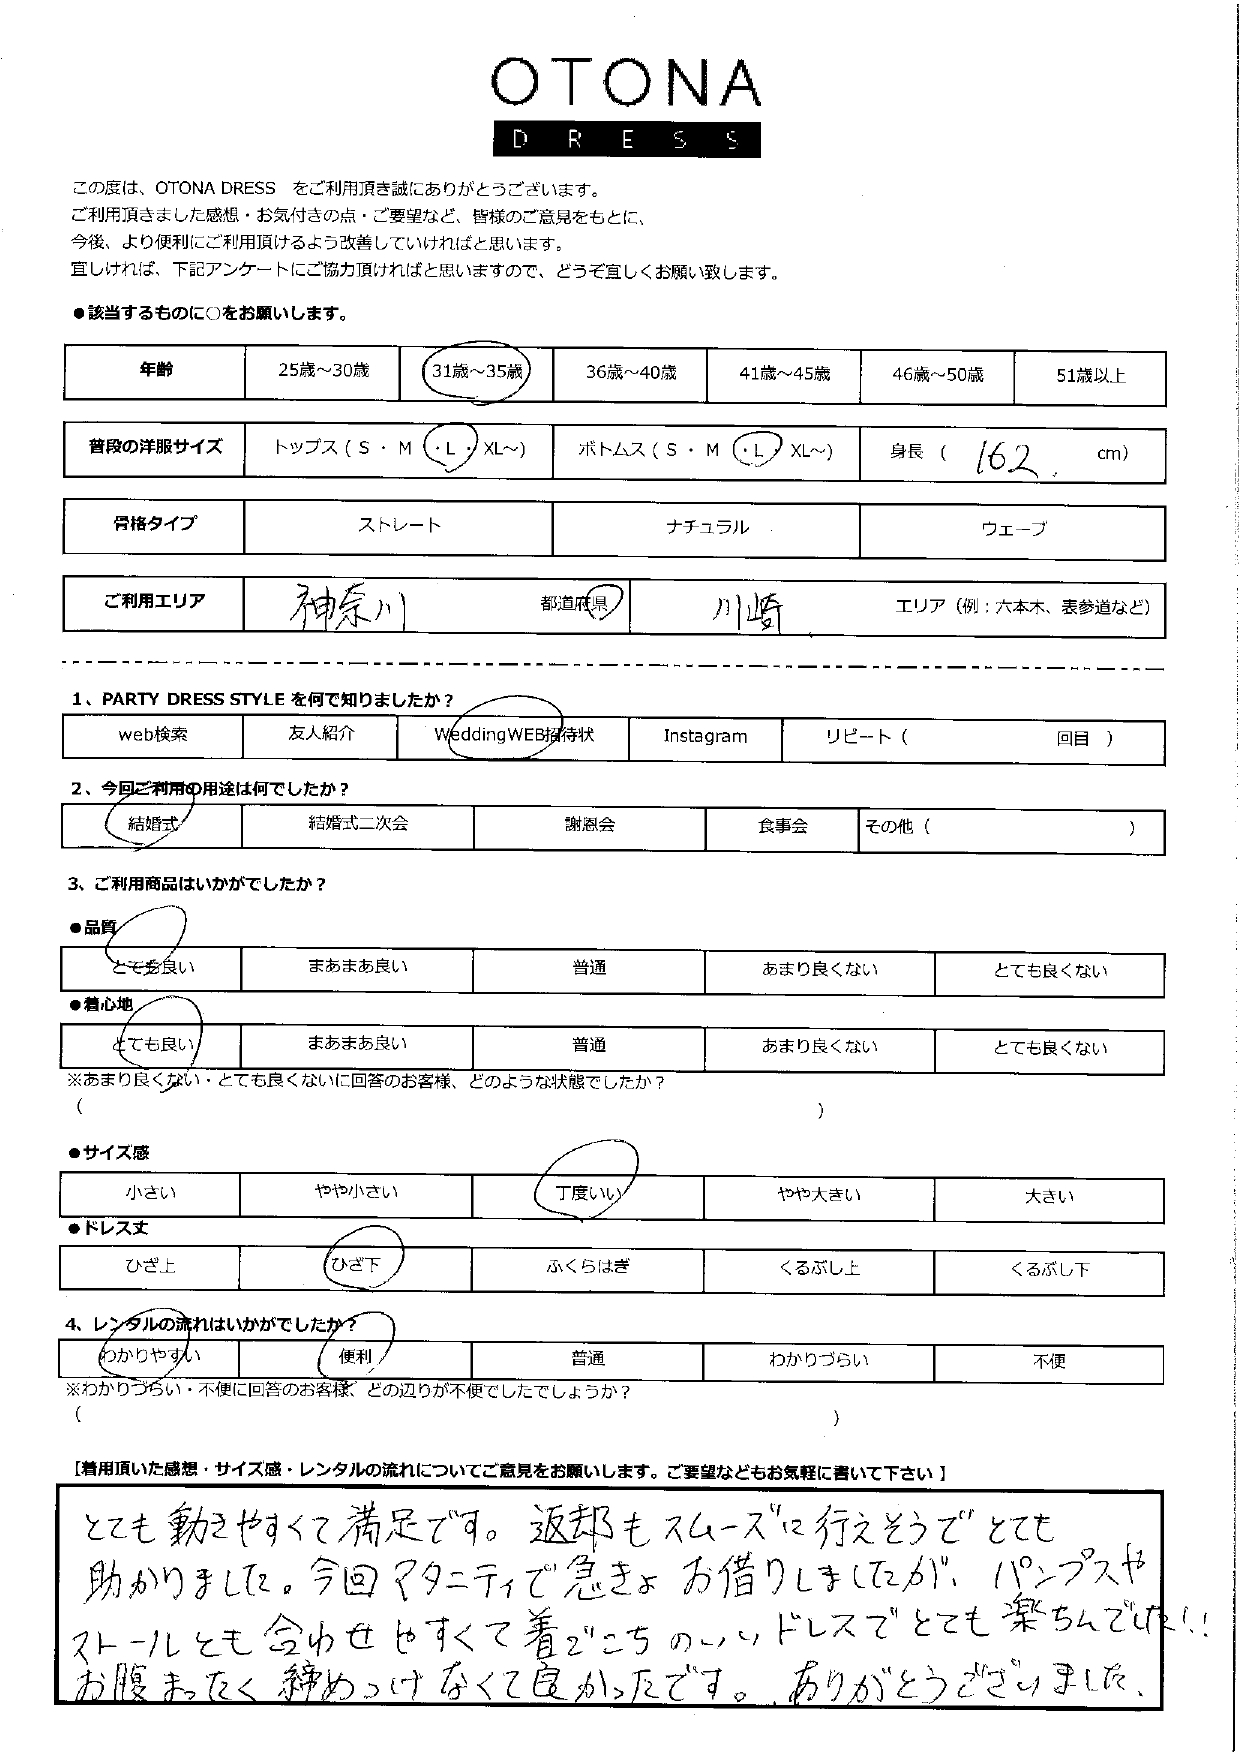 OTONA
DRESS
この度は、OTONA DRESS　をご利用頂き誠にありがとうございます。
ご利用頂きました感想・お気付きの点・ご要望など、皆様のご意見をもとに、
今後、より便利にご利用頂けるよう改善していければと思います。
宜しければ、下記アンケートにご協力頂ければと思いますので、どうぞ宜しくお願い致します。
●該当するものに○をお願いします。
年齢 25歳～30歳 31歳～35歳 36歳～40歳 41歳～45歳 46歳～50歳 51歳以上
普段の洋服サイズ トップス ( S ・ M ・L・ XL～) ボトムス ( S ・ M ・L・ XL～) 身長 ( 162 cm)
骨格タイプ ストレート ナチュラル ウェーブ
ご利用エリア 神奈川 都道府県 川崎 エリア（例：六本木、表参道など）
1、PARTY DRESS STYLE を何で知りましたか？
web検索 友人紹介 WeddingWEB招待状 Instagram リピート（ 回目 ）
2、今回ご利用の用途は何でしたか？
結婚式 結婚式二次会 謝恩会 食事会 その他（ ）
3、ご利用商品はいかがでしたか？
●品質
とても良い まあまあ良い 普通 あまり良くない とても良くない
●着心地
とても良い まあまあ良い 普通 あまり良くない とても良くない
※あまり良くない・とても良くないに回答のお客様、どのような状態でしたか？
（ ）
●サイズ感
小さい やや小さい 丁度いい やや大きい 大きい
●ドレス丈
ひざ上 ひざ下 ふくらはぎ くるぶし上 くるぶし下
4、レンタルの流れはいかがでしたか？
わかりやすい 便利 普通 わかりづらい 不便
※わかりづらい・不便に回答のお客様、どの辺りが不便でしたでしょうか？
（ ）
[着用頂いた感想・サイズ感・レンタルの流れについてご意見をお願いします。ご要望などもお気軽に書いて下さい ]
とても動きやすくて満足です。返却もスムーズに行えそうでとても
助かりました。今回マタニティで急きょお借りしましたが、パンプスや
ストールとも合わせやすくて着ごこちのいいドレスでとても楽ちんでした!!
お腹まったく締めつけなくて良かったです。ありがとうございました、